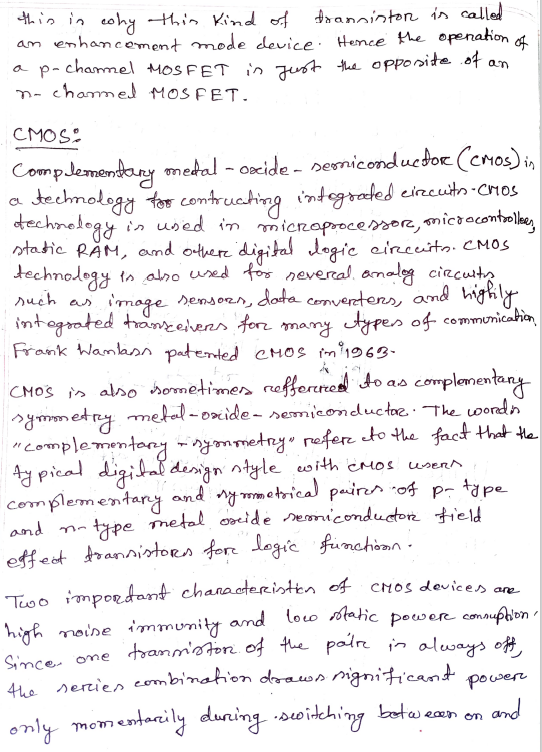 this is why this kind of transistor is called
an enhancement mode device. Hence the operation of
a p-channel MOSFET is just the opposite of an
n-channel MOSFET.
CMOS:
Complementary metal-oxide-semiconductor (CMOS) is
a technology for contructing integrated circuits. CMOS
technology is used in microprocessor, microcontrollers,
static RAM, and other digital logic circuits. CMOS
technology is also used for several analog circuits
such as image sensors, data converters, and highly
integrated transceivers for many types of communication.
Frank Wanlass patented CMOS in 1963.
CMOS is also sometimes refferred to as complementary
symmetry metal-oxide-semiconductor. The words
"complementary - symmetry" refere to the fact that the
typical digital design style with CMOS users
complementary and symmetrical pairs of p-type
and n-type metal oxide semiconductor field
effect transistors for logic function.
Two important characteristics of CMOS devices are
high noise immunity and low static power consuption.
Since one transistor of the pair is always off,
the series combination draws significant power
only momentarily during switching between on and